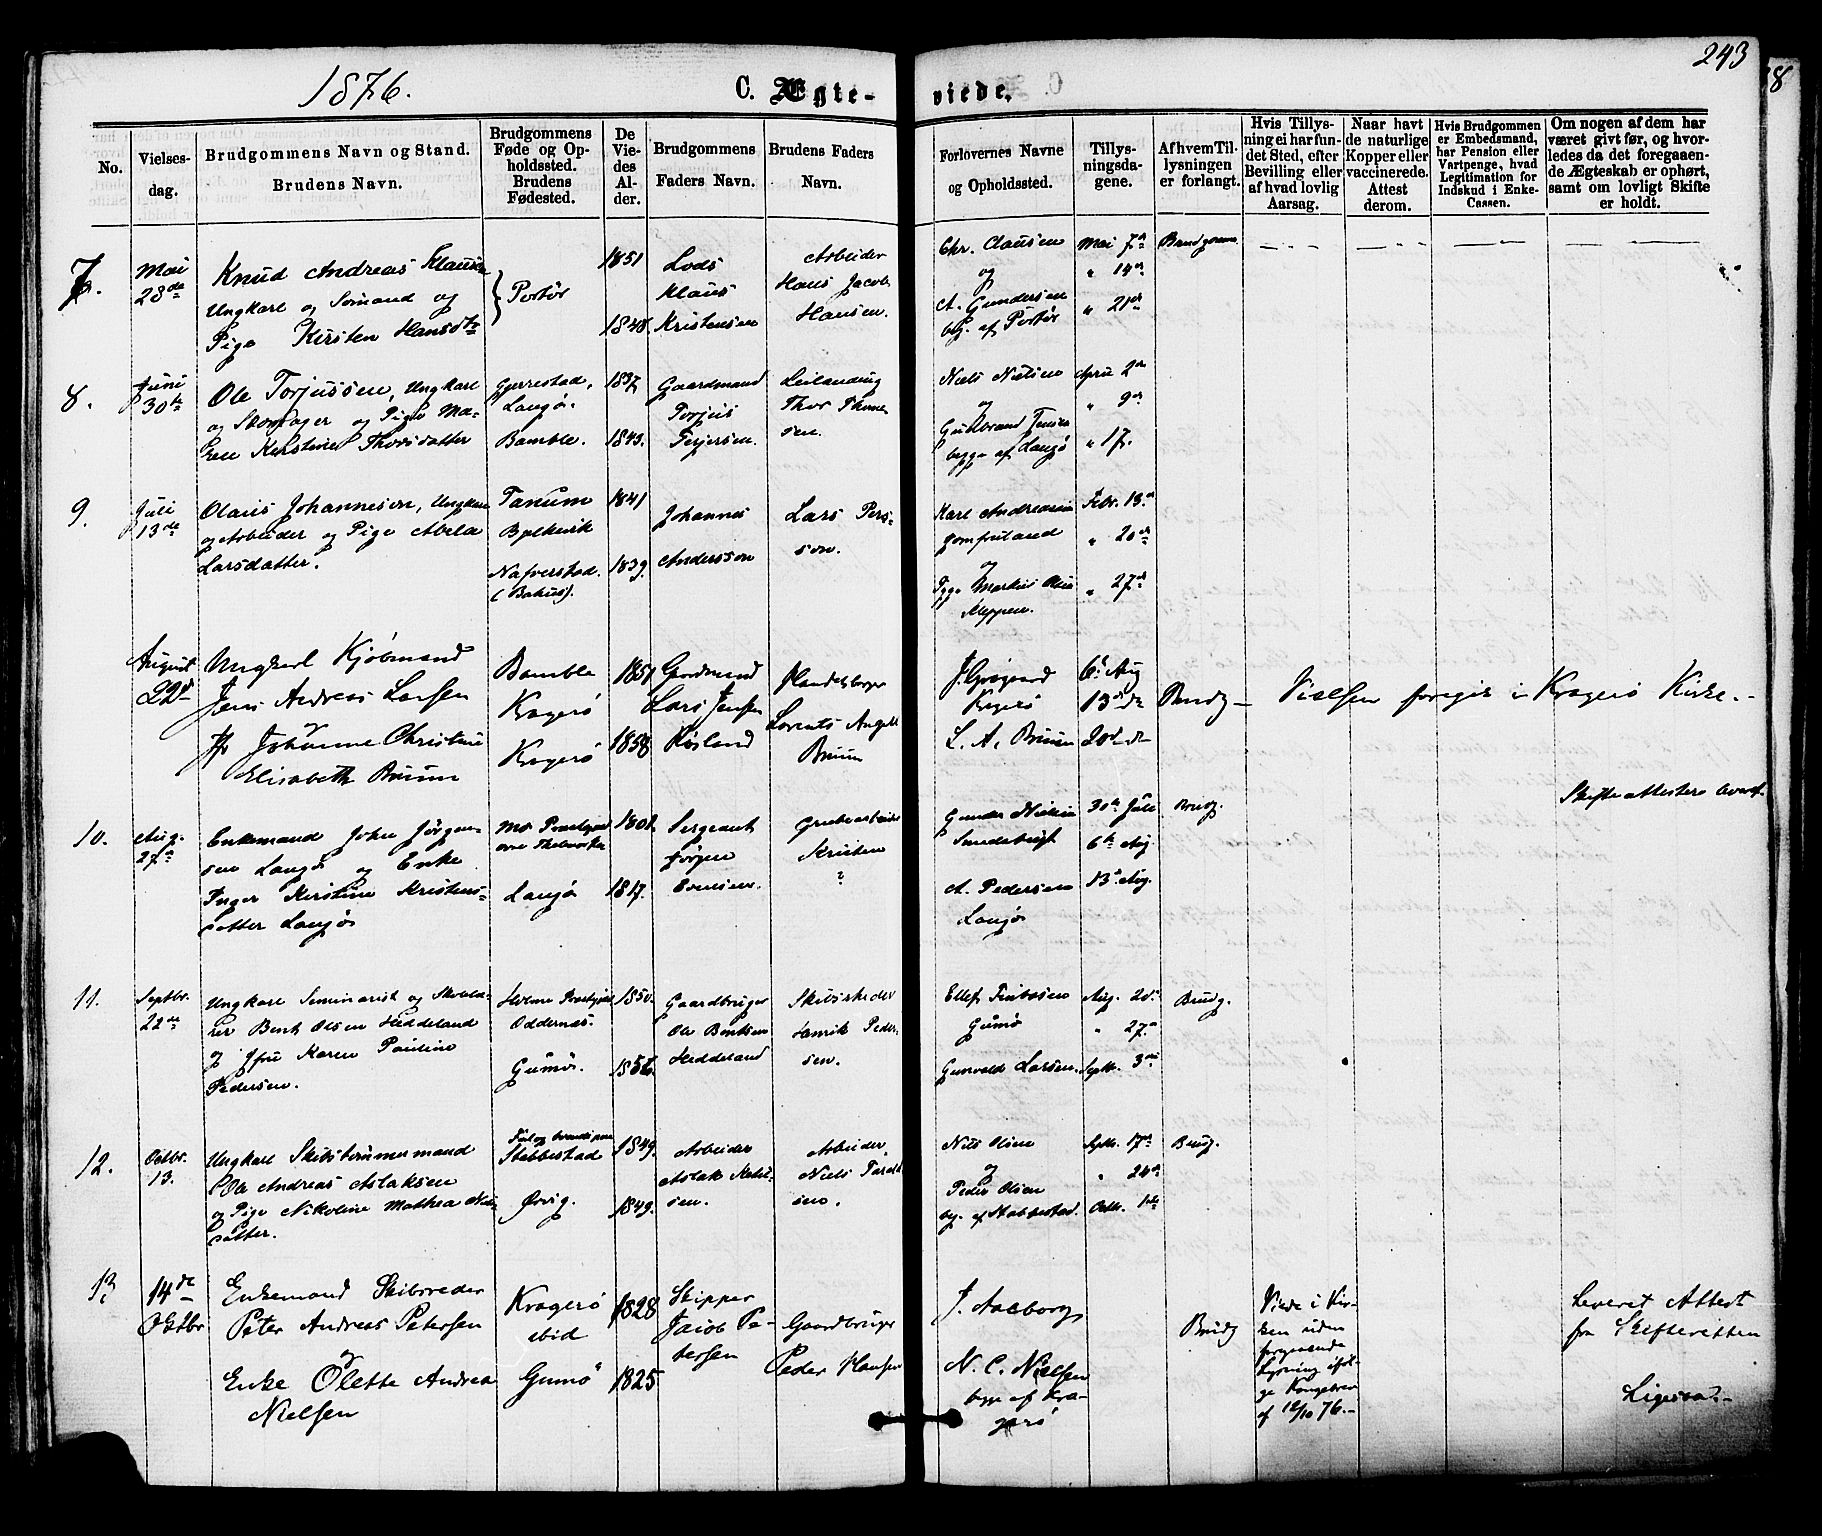 243
1876.
C. Ægte-
viede.
No.
Vielses-
dag.
Brudgommens Navn og Stand.
Brudens Navn.
Brudgommens
Føde og Op-
holdssted.
Brudens
Fødested.
De
Vie-
des
Al-
der.
Brudgommens
Faders Navn.
Brudens Faders
Navn.
Forlovernes Navne
og Opholdssted.
Tillys-
ningsda-
gene.
Af hvem Til-
lysningen
er forlangt.
Hvis Tillys-
ning ei har fun-
det Sted, efter
Bevilling eller
af hvad lovlig
Aarsag.
Naar havt
de naturlige
Kopper eller
vaccinerede.
Attest
derom.
Hvis Brudgommen
er Embedsmand,
har Pension eller
Vartpenge, hvad
Legitimation for
Indskud i Enke-
Cassen.
Om nogen af dem har
været givt før, og hvor-
ledes da det foregaaen-
de Ægteskab er ophørt,
samt om lovligt Skifte
er holdt.
7.
Mai
28de
Knud Andreas Klausen
Ungkarl og Sømand og
Pige Kirsten Hansdtr
Portør
1851
1848.
Lods
Klaus
Kristensen
Arbeider
Hans Jacob
Hansen.
Chr. Clausen
og
A. Gundersen
beg. af Portør
Mai 7de
" 14de
" 21de
Brudgomm.
8.
Juni
30te
Ole Torjussen, Ungkarl
og Skovfoger og Pige Ma-
ren Kirstine Thorsdatter
Gjerrestad,
Langø.
Bamble.
1837
1843.
Gaardmand
Torjus
Terjersen.
Leilænding
Thor Thom-
sen.
Niels Nielsen
og
Gulbrand Jensen
begge af Langø
April 2den
" 9de
" 17.
9.
Juli
13de
Olaus Johannesen, Ungkarl
og Arbeider og Pige Abela
Larsdatter.
Tanum
Nafverstad.
(Bahus).
1841
1839.
Johannes
Andersson
Lars Pers-
son.
Karl Andreasen
Jomfruland
og
Kleppen.
Febr. 13de
" 20de
" 27de
August
22d
Ungkarl Kjøbmand
Jens Andreas Larsen
og
Jfr Johanne Christine
Elisabeth Bruun
Bamble
Kragerø
Kragerø
1851
1858
Gaardmand
Lars Jensen
Røsland
Handelsborger
Lorents Angell
Bruun
J. Grøgaard
Kragerø
L. A. Bruun
6t Aug
13de do
20d do
Brudg
Vielsen foregik i Kragerø Kirke.
10.
Aug.
27de
Enkemand John Jørgen-
sen Langø og Enke
Inger Kirstine Kristens-
datter Langø
Langø
1801.
1817.
Sergeant
Jørgen
Evensen.
Grubearbeider
Kristen
?
Gunder Nielsen
A. Pedersen
Langø
30te Juli
6te Aug.
13de Aug.
Brudg.
Skifteattester leveret
11.
Septbr.
22de
Ungkarl Seminarist og Skolelæ-
rer Bent Olsen Heddeland
og Jfru Karen Pauline
Pedersen.
Holme Prestegjeld
Oddernæs.
Gumø.
1850.
1856.
Gaardbruger
Ole Bentsen
Heddeland
Skibsreder
Henrik Peder-
sen.
Ellef Tobiasen
Gumø
Gunvald Larsen.
Aug. 20de
" 27de
Septr. 3die
Brudg.
12.
Octbr.
13.
Ungkarl Skibstømmermand
Ole Andreas Aslaksen
og Pige Nikoline Mathea Niels-
datter.
Stabbestad
Ørvig.
1849.
1849.
Arbeider
Aslak
sen.
Arbeider,
Niels
sen.
Nils Olsen
og
Peder Olsen
beg. af Stabbestad.
Septr. 17de
" 24de
Octbr. 1ste
Brudg.
13
14de
Oktbr
Enkemand Skibsreder
Peter Andreas Petersen
og
Enke Olette Andrea
Nielsen
Kragerø
ibid
Gumø
1828
1825
Skipper
Jacob Pe-
tersen
Gaardbruger
Peder Hansen
J. Aalborg
N. C. Nielsen
begge af Kra-
gerø
Brudg
Viede i Kir-
ken uden
foregaaende
Lysning iføl-
ge Kongebrev
af 12/10 76.
Leveret Attest
fra Skifteretten
Ligesaa.